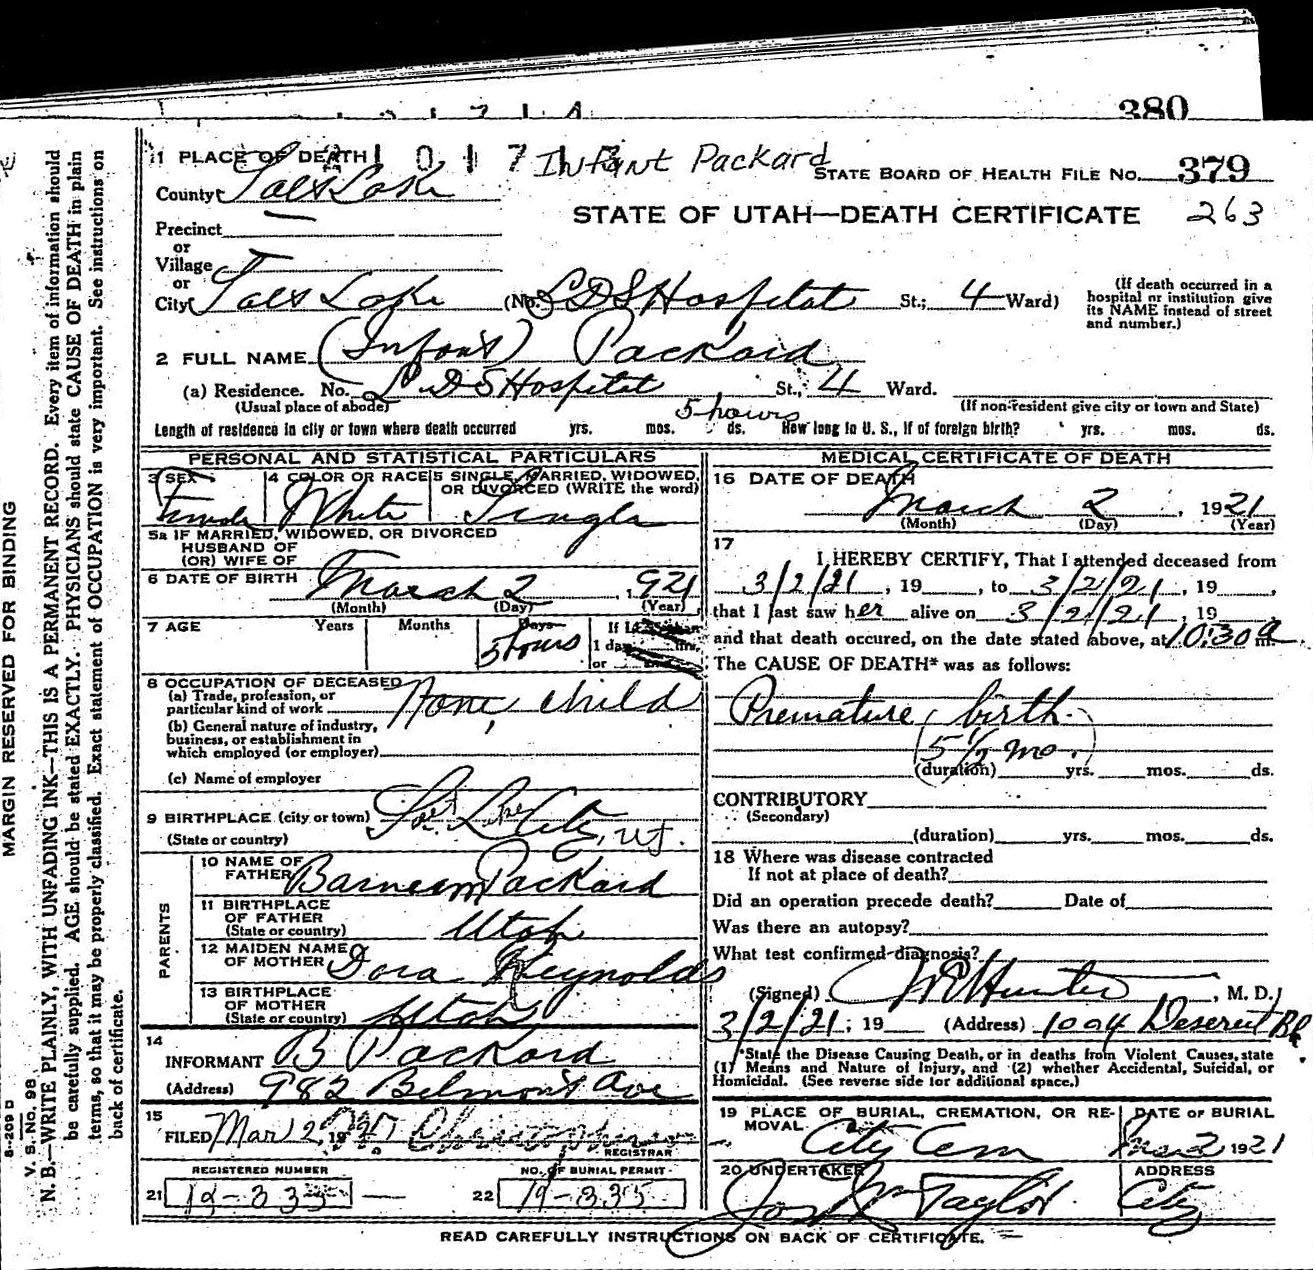 380
1 PLACE OF DEATH Infant Packard
STATE BOARD OF HEALTH FILE No. 379
County Salt Lake
STATE OF UTAH—DEATH CERTIFICATE 263
Precinct
or
Village
or
City Salt Lake (No. LDS Hospital St.; 4 Ward)
(If death occurred in a
hospital or institution give
its NAME instead of street
and number.)
2 FULL NAME (Infant) Packard
(a) Residence. No. LDS Hospital St.; 4 Ward.
(Usual place of abode) (If non-resident give city or town and State)
5 hours
Length of residence in city or town where death occurred yrs. mos. ds. How long in U. S., if of foreign birth? yrs. mos. ds.
PERSONAL AND STATISTICAL PARTICULARS
3 SEX 4 COLOR OR RACE 5 SINGLE, MARRIED, WIDOWED,
OR DIVORCED (WRITE the word)
Female White Single
5a IF MARRIED, WIDOWED, OR DIVORCED
HUSBAND OF
(OR) WIFE OF
6 DATE OF BIRTH March 2, 1921
(Month) (Day) (Year)
7 AGE Years Months Days
5 hours
1 day hrs.
or
8 OCCUPATION OF DECEASED
(a) Trade, profession, or
particular kind of work None, child
(b) General nature of industry,
business, or establishment in
which employed (or employer)
(c) Name of employer
9 BIRTHPLACE (city or town) Salt Lake City, Ut.
(State or country)
PARENTS
10 NAME OF
FATHER Barneam Packard
11 BIRTHPLACE
OF FATHER
(State or country) Utah
12 MAIDEN NAME
OF MOTHER Dora Reynolds
13 BIRTHPLACE
OF MOTHER
(State or country) Utah
14
INFORMANT B Packard
(Address) 982 Belmont Ave
15
FILED Mar 2, 19
REGISTRAR
REGISTERED NUMBER NO. OF BURIAL PERMIT
21 19-335 22 19-335
MEDICAL CERTIFICATE OF DEATH
16 DATE OF DEATH
March 2, 1921
(Month) (Day) (Year)
17
I HEREBY CERTIFY, That I attended deceased from
3/2/21, 19 , to 3/2/21, 19 ,
that I last saw her alive on 3/2/21, 19
and that death occured, on the date stated above, at 10:30 a m.
The CAUSE OF DEATH* was as follows:
Premature birth.
(5½ mo.)
(duration) yrs. mos. ds.
CONTRIBUTORY
(Secondary)
(duration) yrs. mos. ds.
18 Where was disease contracted
If not at place of death?
Did an operation precede death? Date of
Was there an autopsy?
What test confirmed diagnosis?
(Signed) Hunter, M. D.
3/2/21; 19 (Address) 1004 Deseret Bk.
*State the Disease Causing Death, or in deaths from Violent Causes, state
(1) Means and Nature of Injury, and (2) whether Accidental, Suicidal, or
Homicidal. (See reverse side for additional space.)
19 PLACE OF BURIAL, CREMATION, OR RE-
MOVAL DATE OF BURIAL
City Cem Mar 2 1921
20 UNDERTAKER ADDRESS
Jos Wm Taylor City
READ CAREFULLY INSTRUCTIONS ON BACK OF CERTIFICATE.
MARGIN RESERVED FOR BINDING
S-209 D
V. S. No. 98
N. B.—WRITE PLAINLY, WITH UNFADING INK—THIS IS A PERMANENT RECORD. Every item of information should
be carefully supplied. AGE should be stated EXACTLY. PHYSICIANS should state CAUSE OF DEATH in plain
terms, so that it may be properly classified. Exact statement of OCCUPATION is very important. See instructions on
back of certificate.